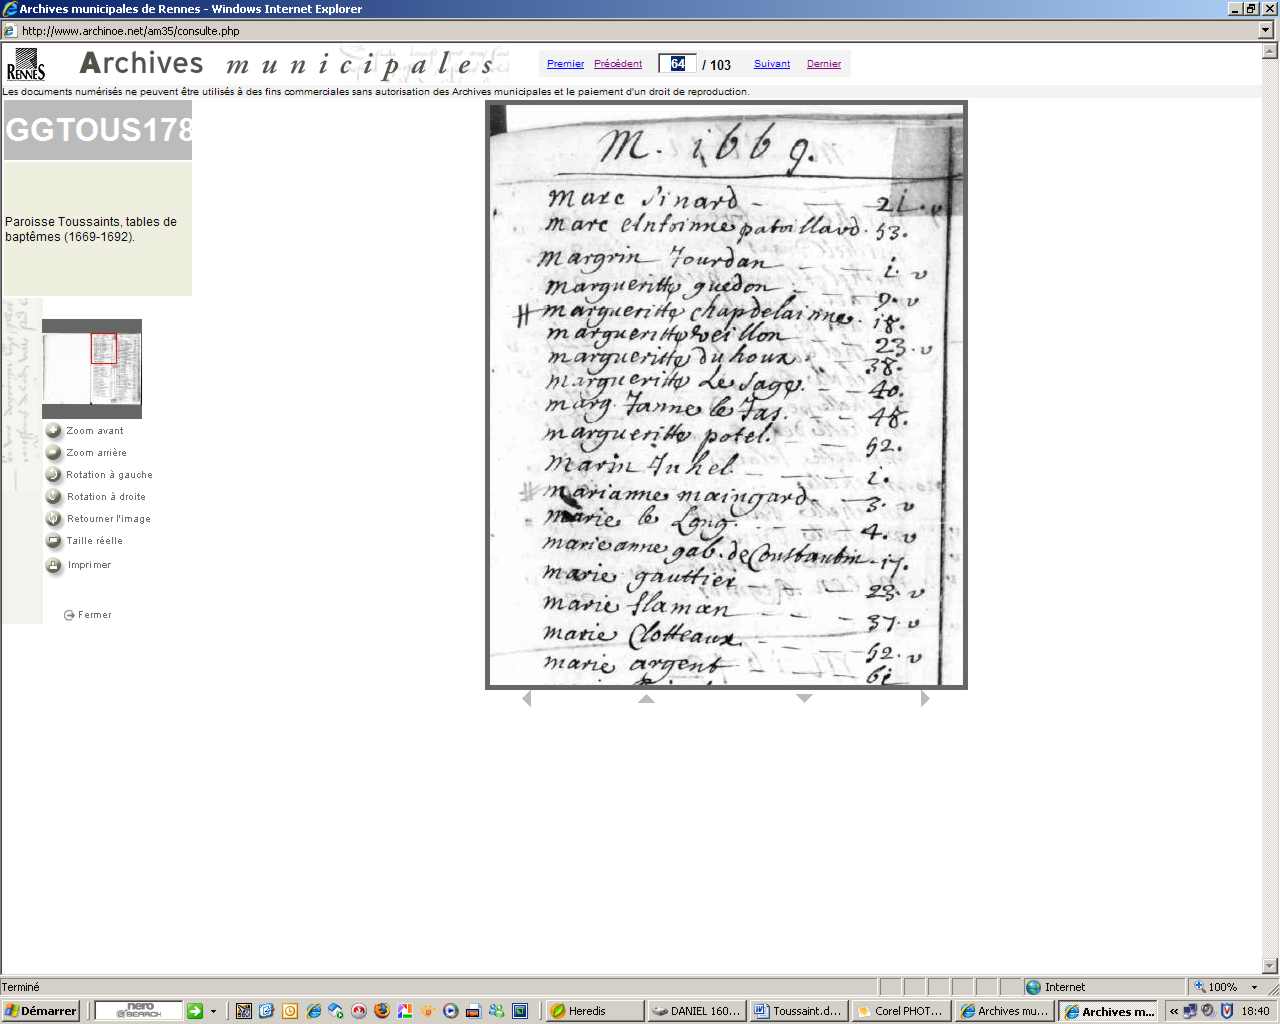 Archives municipales de Rennes - Windows Internet Explorer
http://www.archinoe.net/am35/consulte.php
RENNES
Archives municipales
Premier Précédent 64 / 103 Suivant Dernier
Les documents numérisés ne peuvent être utilisés à des fins commerciales sans autorisation des Archives municipales et le paiement d'un droit de reproduction.
GGTOUS178
Paroisse Toussaints, tables de
baptêmes (1669-1692).
Zoom avant
Zoom arrière
Rotation à gauche
Rotation à droite
Retourner l'image
Taille réelle
Imprimer
Fermer
M. 1669.
Marc Sinard - - - 21. v
marc Antoinne patoillard. 53.
margrin Jourdan - - - i. v
margueritte guedon - - - 9. v
# margueritte chapdelainne. 18.
margueritte veillon - - 23. v
margueritte du houx - - 38.
margueritte Le Sage. - - 40.
marg. Janne le Jas. - - 48.
margueritte potel. - - 52.
Marin Juhel - - - i.
# marianne maingard - - 3. v
marie le Long. - - - 4. v
marie anne gab. de - 17.
marie gauttier - - - 23. v
marie flaman - - - 37. v
marie Clotteaux - - - 52. v
marie argent - - - 61
Terminé
Internet
100%
Démarrer
nero
SEARCH
Heredis
DANIEL 160...
Toussaint.d...
Corel PHOT...
Archives mu...
Archives m...
18:40